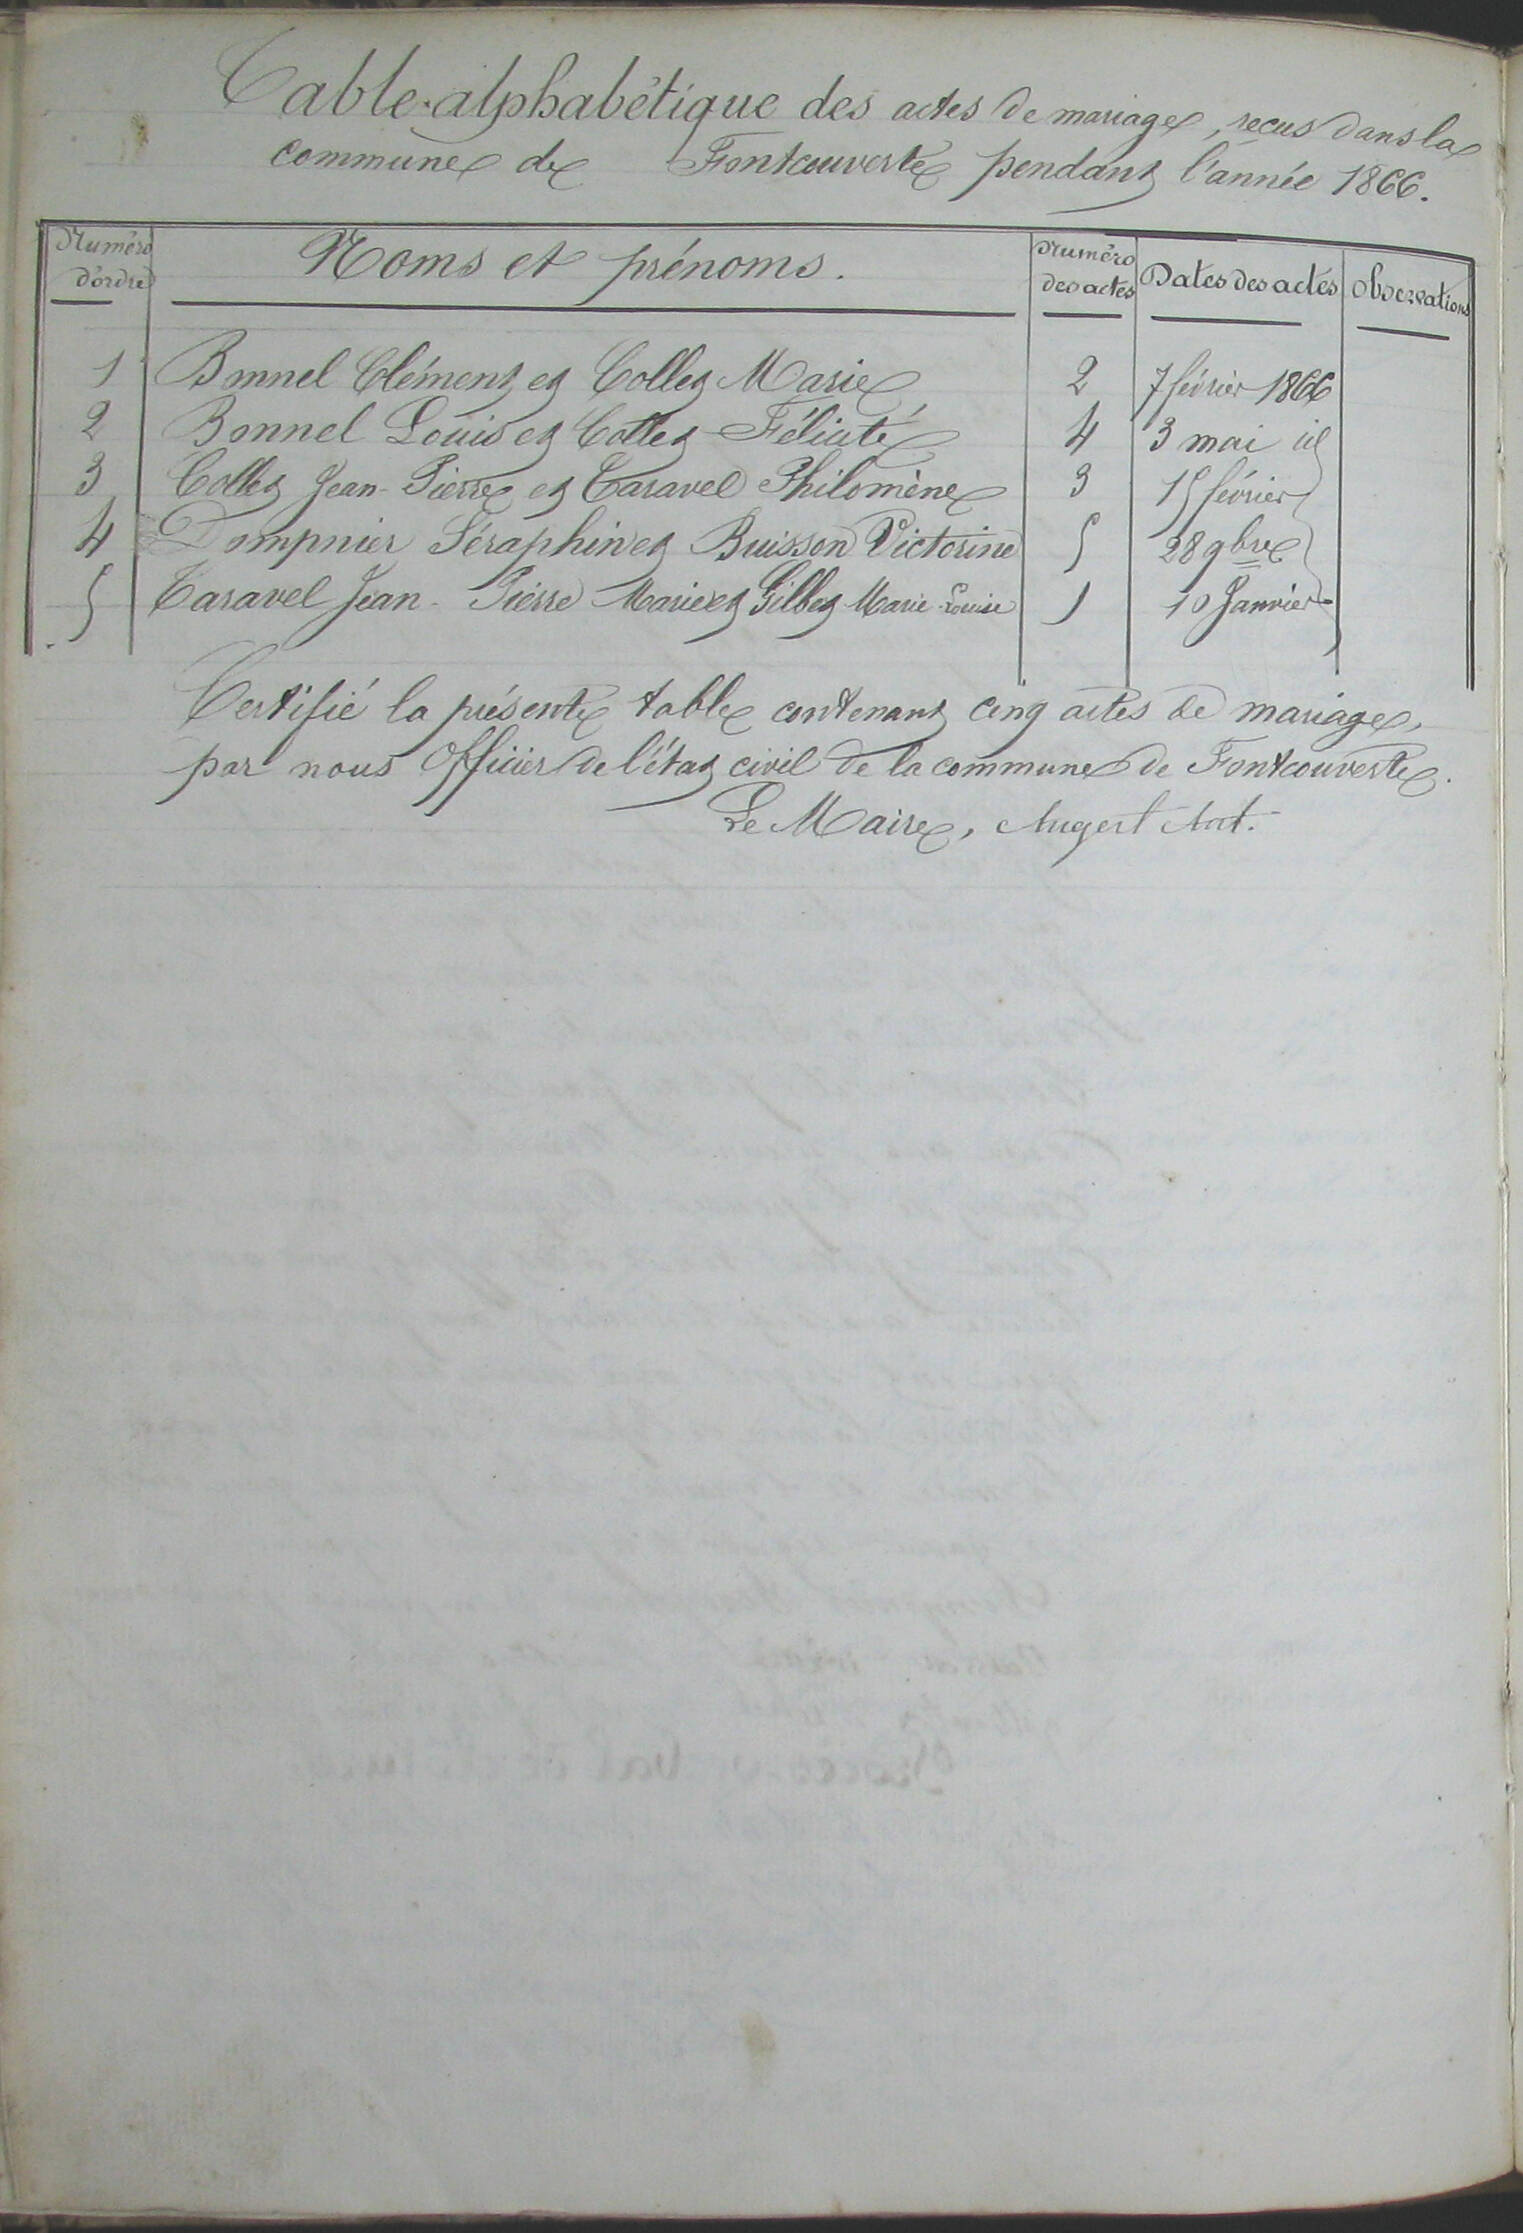 Table alphabétique des actes de mariage, reçus dans la
commune de Fontcouverte pendant l'année 1866.
Numéro d'ordre Noms et prénoms. Numéro des actes Dates des actes Observations
1 Bonnel Clément et Collet Marie 2 7 février 1866
2 Bonnel Louis et Collet Félicité 4 3 mai id
3 Collet Jean-Pierre et Taravel Philomène 3 15 février
4 Dompnier Séraphin et Buisson Victorine 5 28 9bre
5 Taravel Jean-Pierre Marie et Gilbet Marie-Louise 1 10 Janvier
Certifié la présente table contenant cinq actes de mariage,
par nous Officier de l'état civil de la commune de Fontcouverte.
Le Maire, Augert Ant.